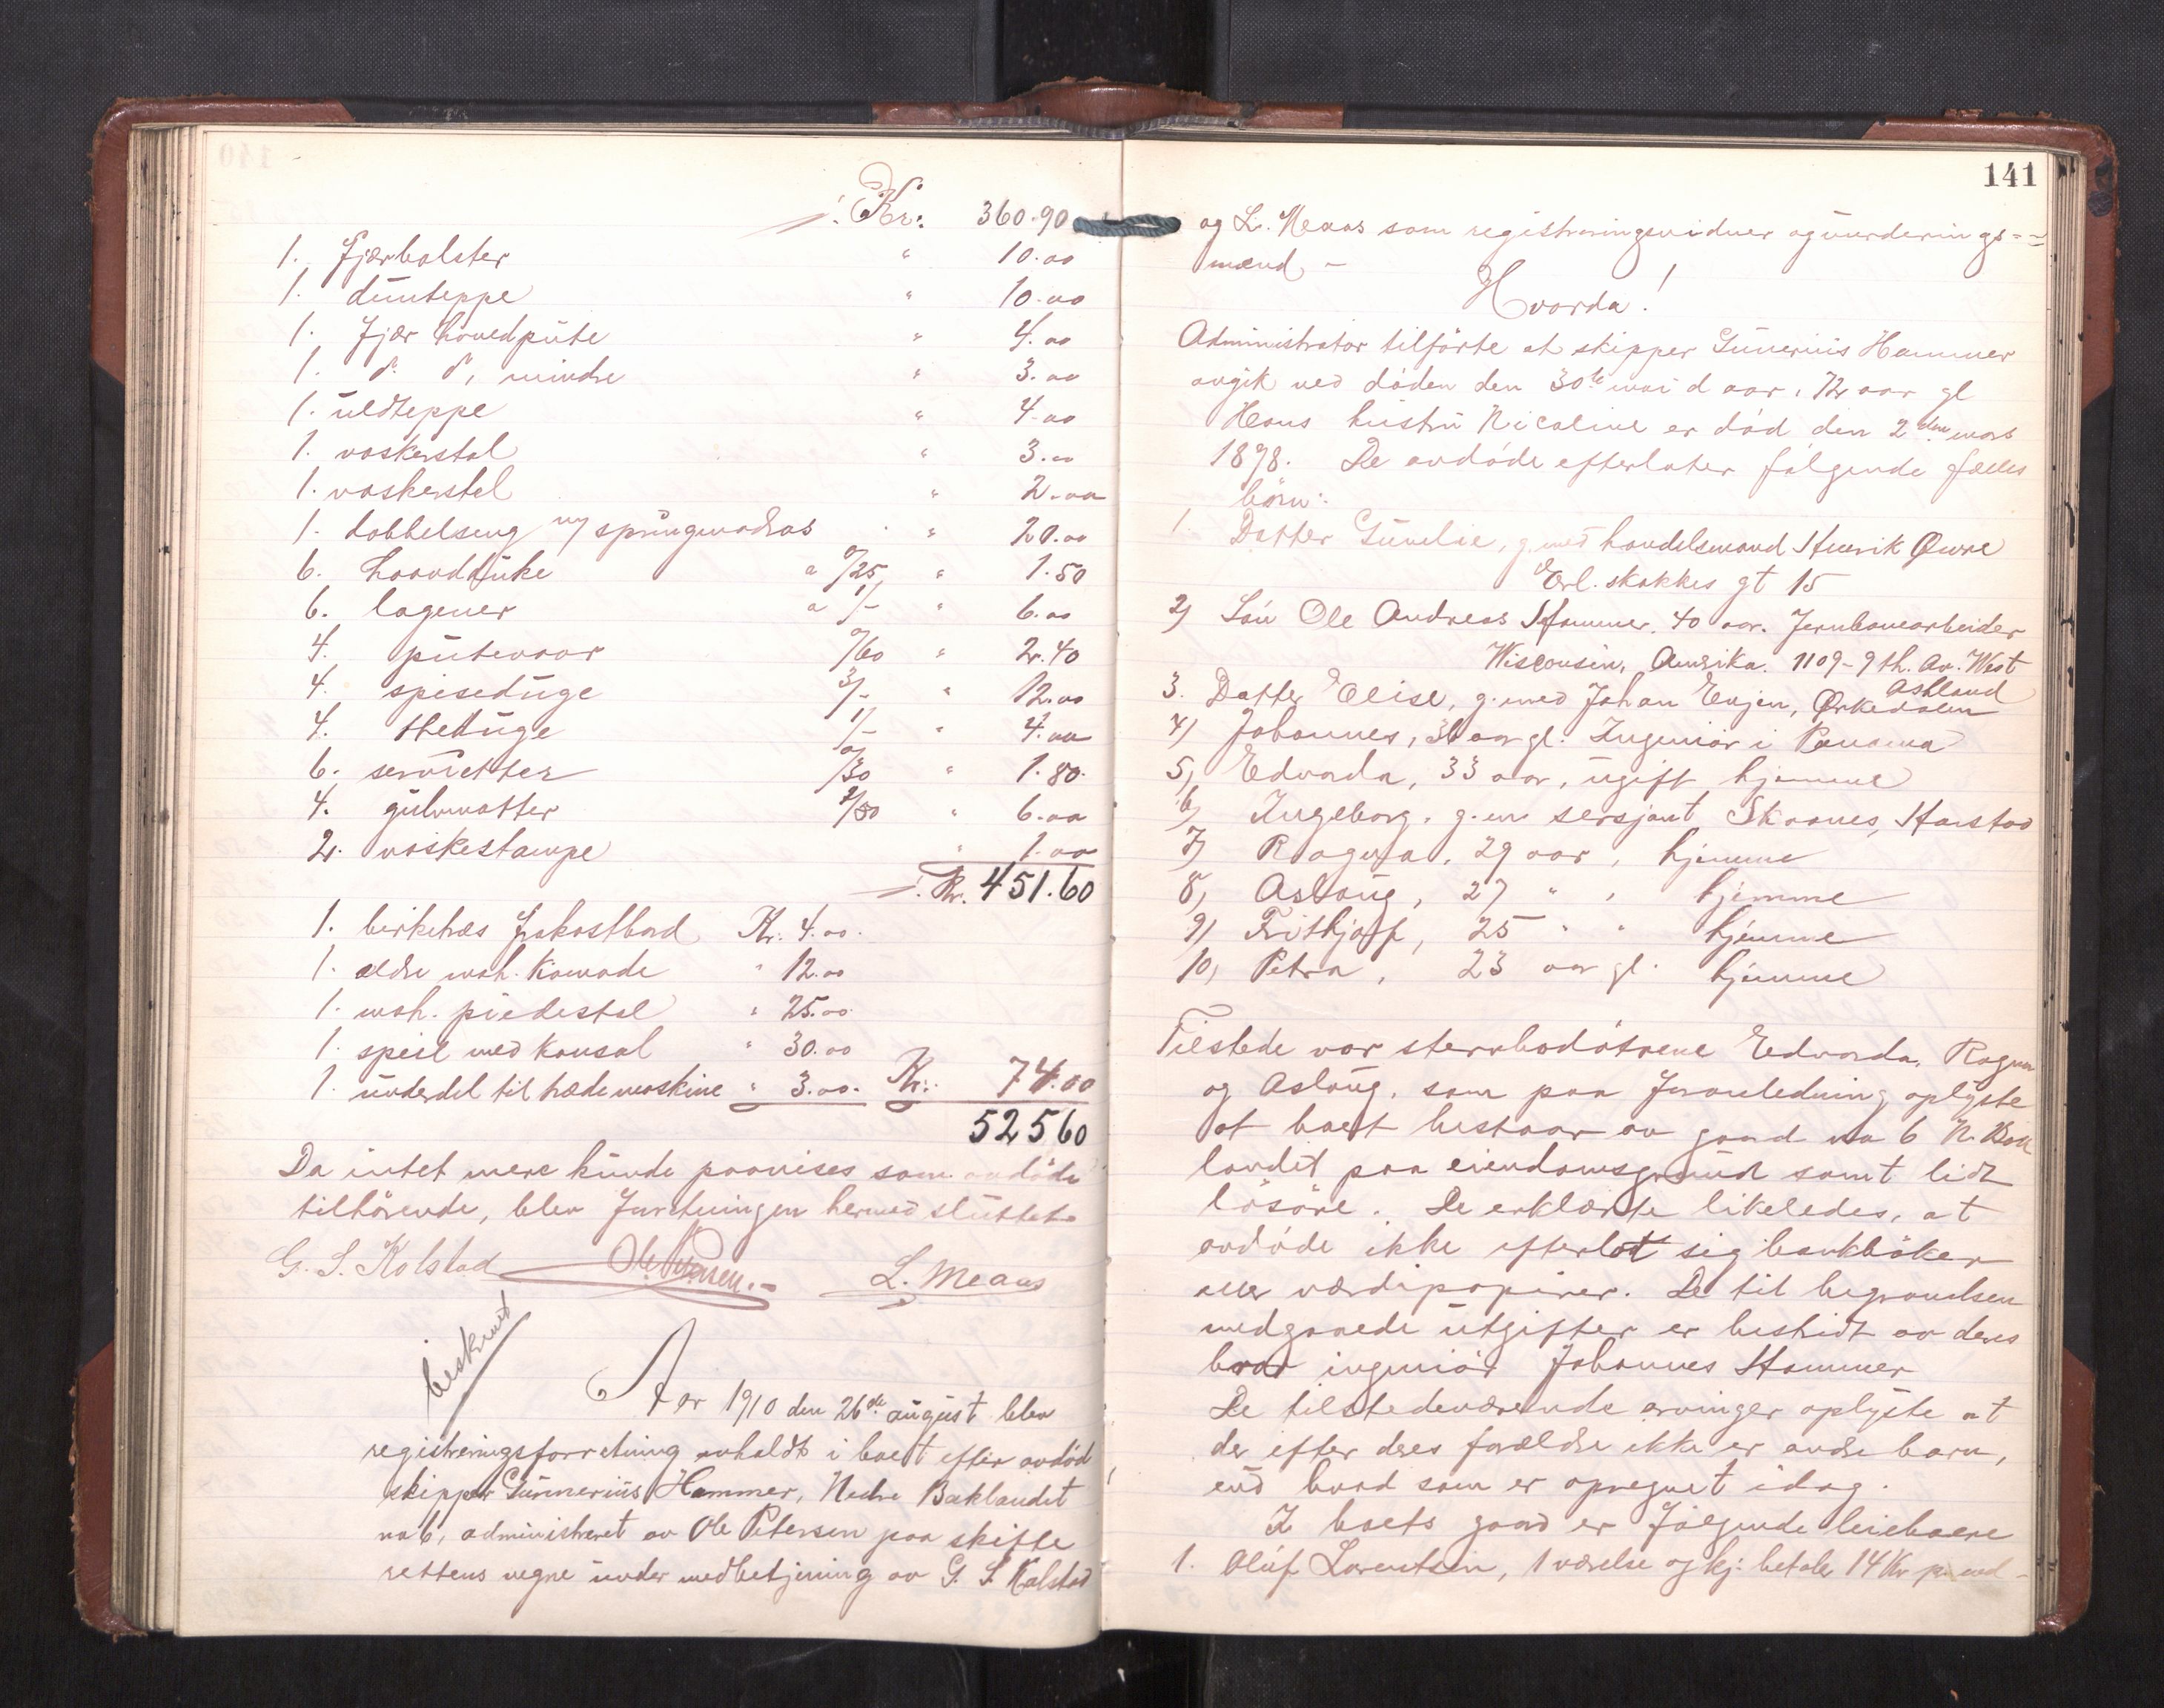 ./. Kr: 360.90
1. Fjærbolster " 10.00
1. dunteppe " 10.00
1. Fjær hovedpute " 4.00
1. do. do, mindre " 3.00
1. uldteppe " 4.00
1. vaskerstol " 3.00
1. vaskerstel " 2.00
1. dobbelseng m/ springmadras " 20.00
6. haandduke a 0/25 " 1.50
6. lagener a 1/- " 6.00
4. putevaar 0/60 " 2.40
4. spiseduge 3/- " 12.00
4. theduge 1/- " 4.00
6. servietter 0/30 " 1.80
4. gulvmatter " 6.00
2. vaskestampe " 1.00
./. Kr. 451.60
1. birketræs frokostbord Kr. 4.00.
1. ældre mah. Komode " 12.00
1. mah. piedestal " 25.00
1. speil med konsol " 30.00
1. underdel til trædemaskine " 3.00. Kr: 74.00
525 60
Da intet mere kunde paavises som avdöde
tilhörende, blev Forretningen hermed sluttet
G. S. Kolstad L. Meaas
beskrevet
Aar 1910 den 26de august blev
registreringsforretning avholdt i boet efter avdöd
skipper Gunnerius Hammer, Nedre Baklandet
no 6, administreret av Ole Petersen paa skifte
rettens vegne under medbetjening av G. S. Kolstad
141
og L. Meaas som registreringsvidner og vurderings=
mænd, -
Hvorda!
Administrator tilförte at skipper Gunerius Hammer
avgik ved döden den 30te mai d aar, 72 aar gl
Hans hustru Nicoline er död den 2den mars
1898. De avdöde efterlater følgende fælles
börn:
1. Datter Gunelie, g. med handelsmand Henrik Øwre
Erl. skakkes gt 15
2) Sön Ole Andreas Hammer, 40 aar. Jernbanearbeider
Wisconsin, Amerika. 1109-9th. Av. West
Ashland
3. Datter Elise, g. med Johan Evjen, Ørkedalen
4) Johannes, 36 aar gl. Ingeniör i Panama
5) Edvarda, 33 aar, ugift hjemme
6) Ingeborg, g. m. sersjant Skaanes, Harstad
7) Ragna, 29 aar, hjemme
8) Aslaug, 27 " , hjemme
9) Frithjof, 25 " " hjemme
10) Petra, 23 aar gl. hjemme
Tilstede var stervbodötrene Edvarda, Ragna
og Aslaug, som paa foranledning oplyste
at boet bestaar av gaard no 6 N. Bak
landet paa eiendomsgrund samt lidt
lösöre. De erklærte likeledes, at
avdöde ikke efterlot sig bankböker
eller værdipapirer. De til begravelsen
medgaaede utgifter er bestridt av deres
bror ingeniör Johannes Hammer
De tilstedeværende arvinger oplyste at
der efter deres forældre ikke er andre barn,
end hvad som er opregnet idag.
I boets gaard er følgende leieboere
1. Oluf Lorentsen, 1 værelse og kj. betaler 14 Kr pr. md -